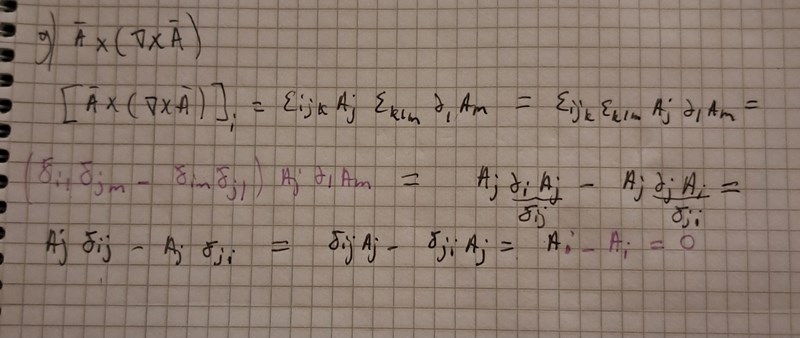 g) Ā × (∇×Ā)
[Ā×(∇×Ā)]ᵢ = εijk Aj εklm ∂l Am = εijk εklm Aj ∂l Am =
(δil δjm − δim δjl) Aj ∂l Am = Aj ∂i Aj − Aj ∂j Ai =
δij δji
Aj δij − Aj δji = δij Aj − δji Aj = Ai − Ai = 0